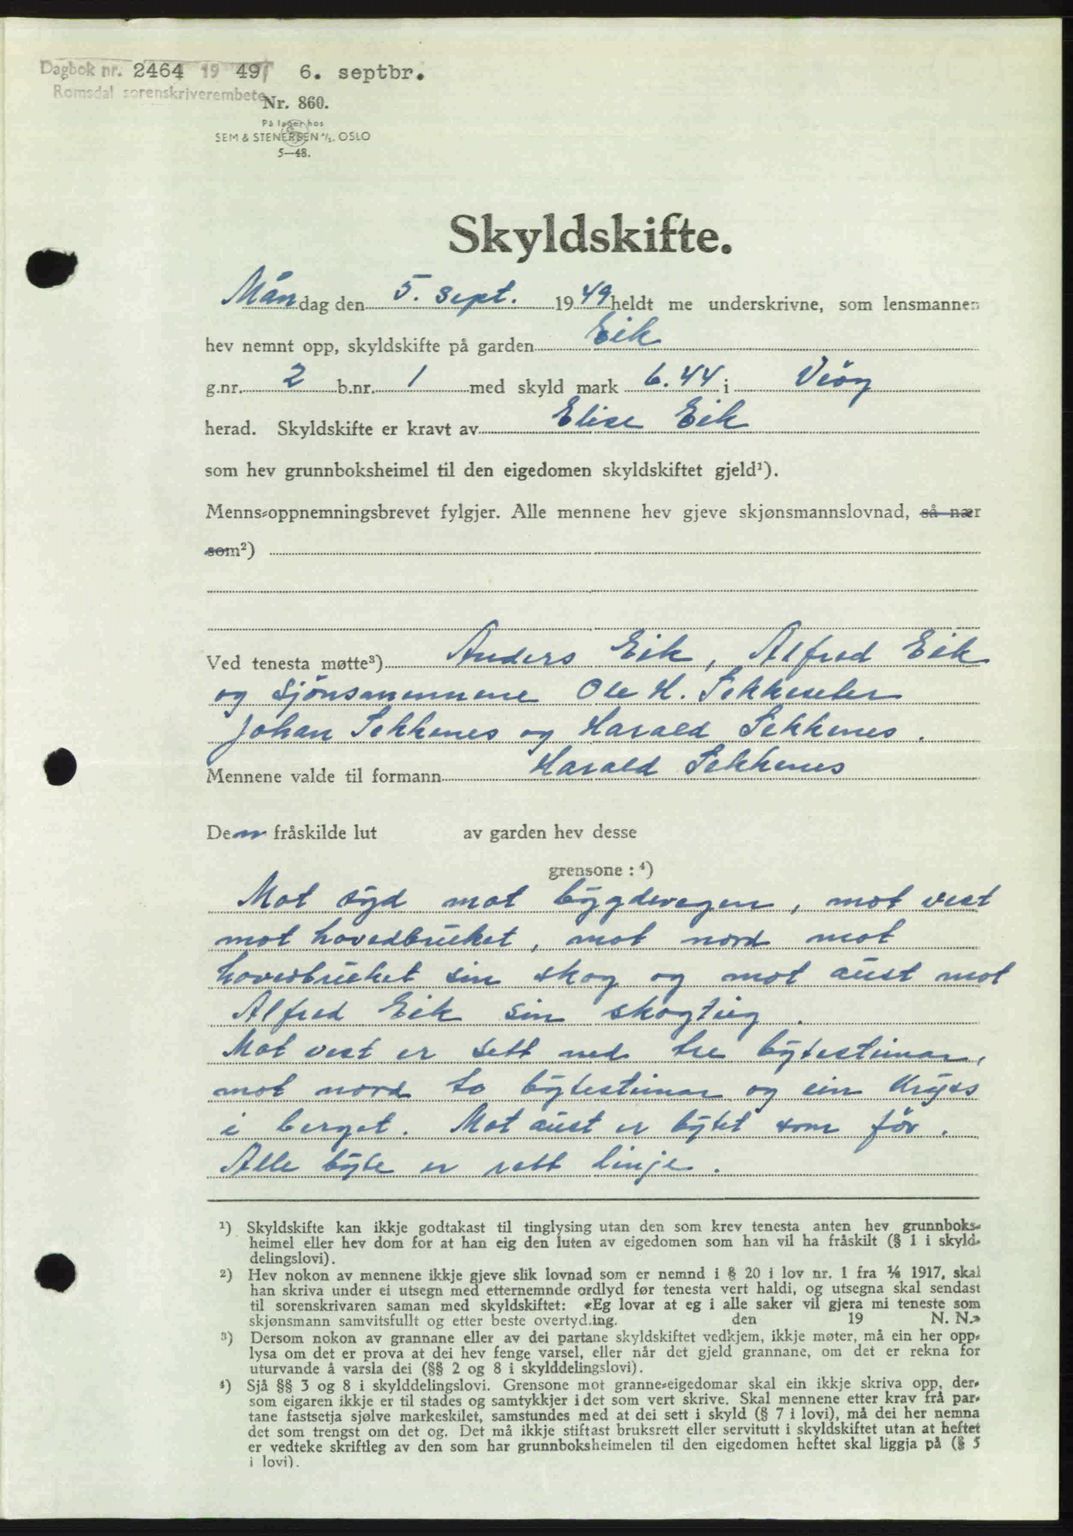 Dagbok nr. 2464 19 49 6. septbr.
Romsdal sorenskriverembete
Nr. 860.
På lager hos
SEM & STENERSEN A/S. OSLO
5—48.
Skyldskifte.
Måndag den 5. sept. 1949 heldt me underskrivne, som lensmannen
hev nemnt opp, skyldskifte på garden Eik
g.nr. 2 b.nr. 1 med skyld mark 6.44 i Veöy
herad. Skyldskifte er kravt av Elise Eik
som hev grunnboksheimel til den eigedomen skyldskiftet gjeld¹).
Menns-oppnemningsbrevet fylgjer. Alle mennene hev gjeve skjønsmannslovnad, så nær
som²)
Ved tenesta møtte³) Anders Eik, Alfred Eik
og Sjönsmennene Ole H. Sekkeseter
Johan Sekkenes og Harald Sekkenes.
Mennene valde til formann Harald Sekkenes
Den fråskilde lut av garden hev desse
grensone : ⁴)
Mot syd mot bygdevegen, mot vest
mot hovedbruket, mot nord mot
hovedbruket sin skog og mot aust mot
Alfred Eik sin skogteig.
Mot vest er sett ned tre bytesteinar,
mot nord to bytesteinar og ein Kryss
i berget. Mot aust er bytet som för.
Alle byte er rett linje.
¹) Skyldskifte kan ikkje godtakast til tinglysing utan den som krev tenesta anten hev grunnboks-
heimel eller hev dom for at han eig den luten av eigedomen som han vil ha fråskilt (§ 1 i skyld-
delingslovi).
²) Hev nokon av mennene ikkje gjeve slik lovnad som er nemnd i § 20 i lov nr. 1 fra ¹/₆ 1917, skal
han skriva under ei utsegn med etternemnde ordlyd før tenesta vert haldi, og utsegna skal sendast
til sorenskrivaren saman med skyldskiftet: «Eg lovar at eg i alle saker vil gjera mi teneste som
skjønsmann samvitsfullt og etter beste overtyding. den 19 N. N.»
³) Dersom nokon av grannane eller av dei partane skyldskiftet vedkjem, ikkje møter, må ein her opp-
lysa om det er prova at dei hev fenge varsel, eller når det gjeld grannane, om det er rekna for
uturvande å varsla dei (§§ 2 og 8 i skylddelingslovi).
⁴) Sjå §§ 3 og 8 i skylddelingslovi. Grensone mot granne-eigedomar skal ein ikkje skriva opp, der-
som eigaren ikkje er til stades og samtykkjer i det som vert skrive. Skal mennene etter krav frå par-
tane fastsetja sjølve markeskilet, samstundes med at dei sett i skyld (§ 7 i lovi), må dei her nemna
det som trengst om det og. Det må ikkje stiftast bruksrett eller servitutt i skyldskiftet utan at heftet
er vedteke skriftleg av den som har grunnboksheimelen til den eigedomen heftet skal liggja på (§ 5
i lovi).